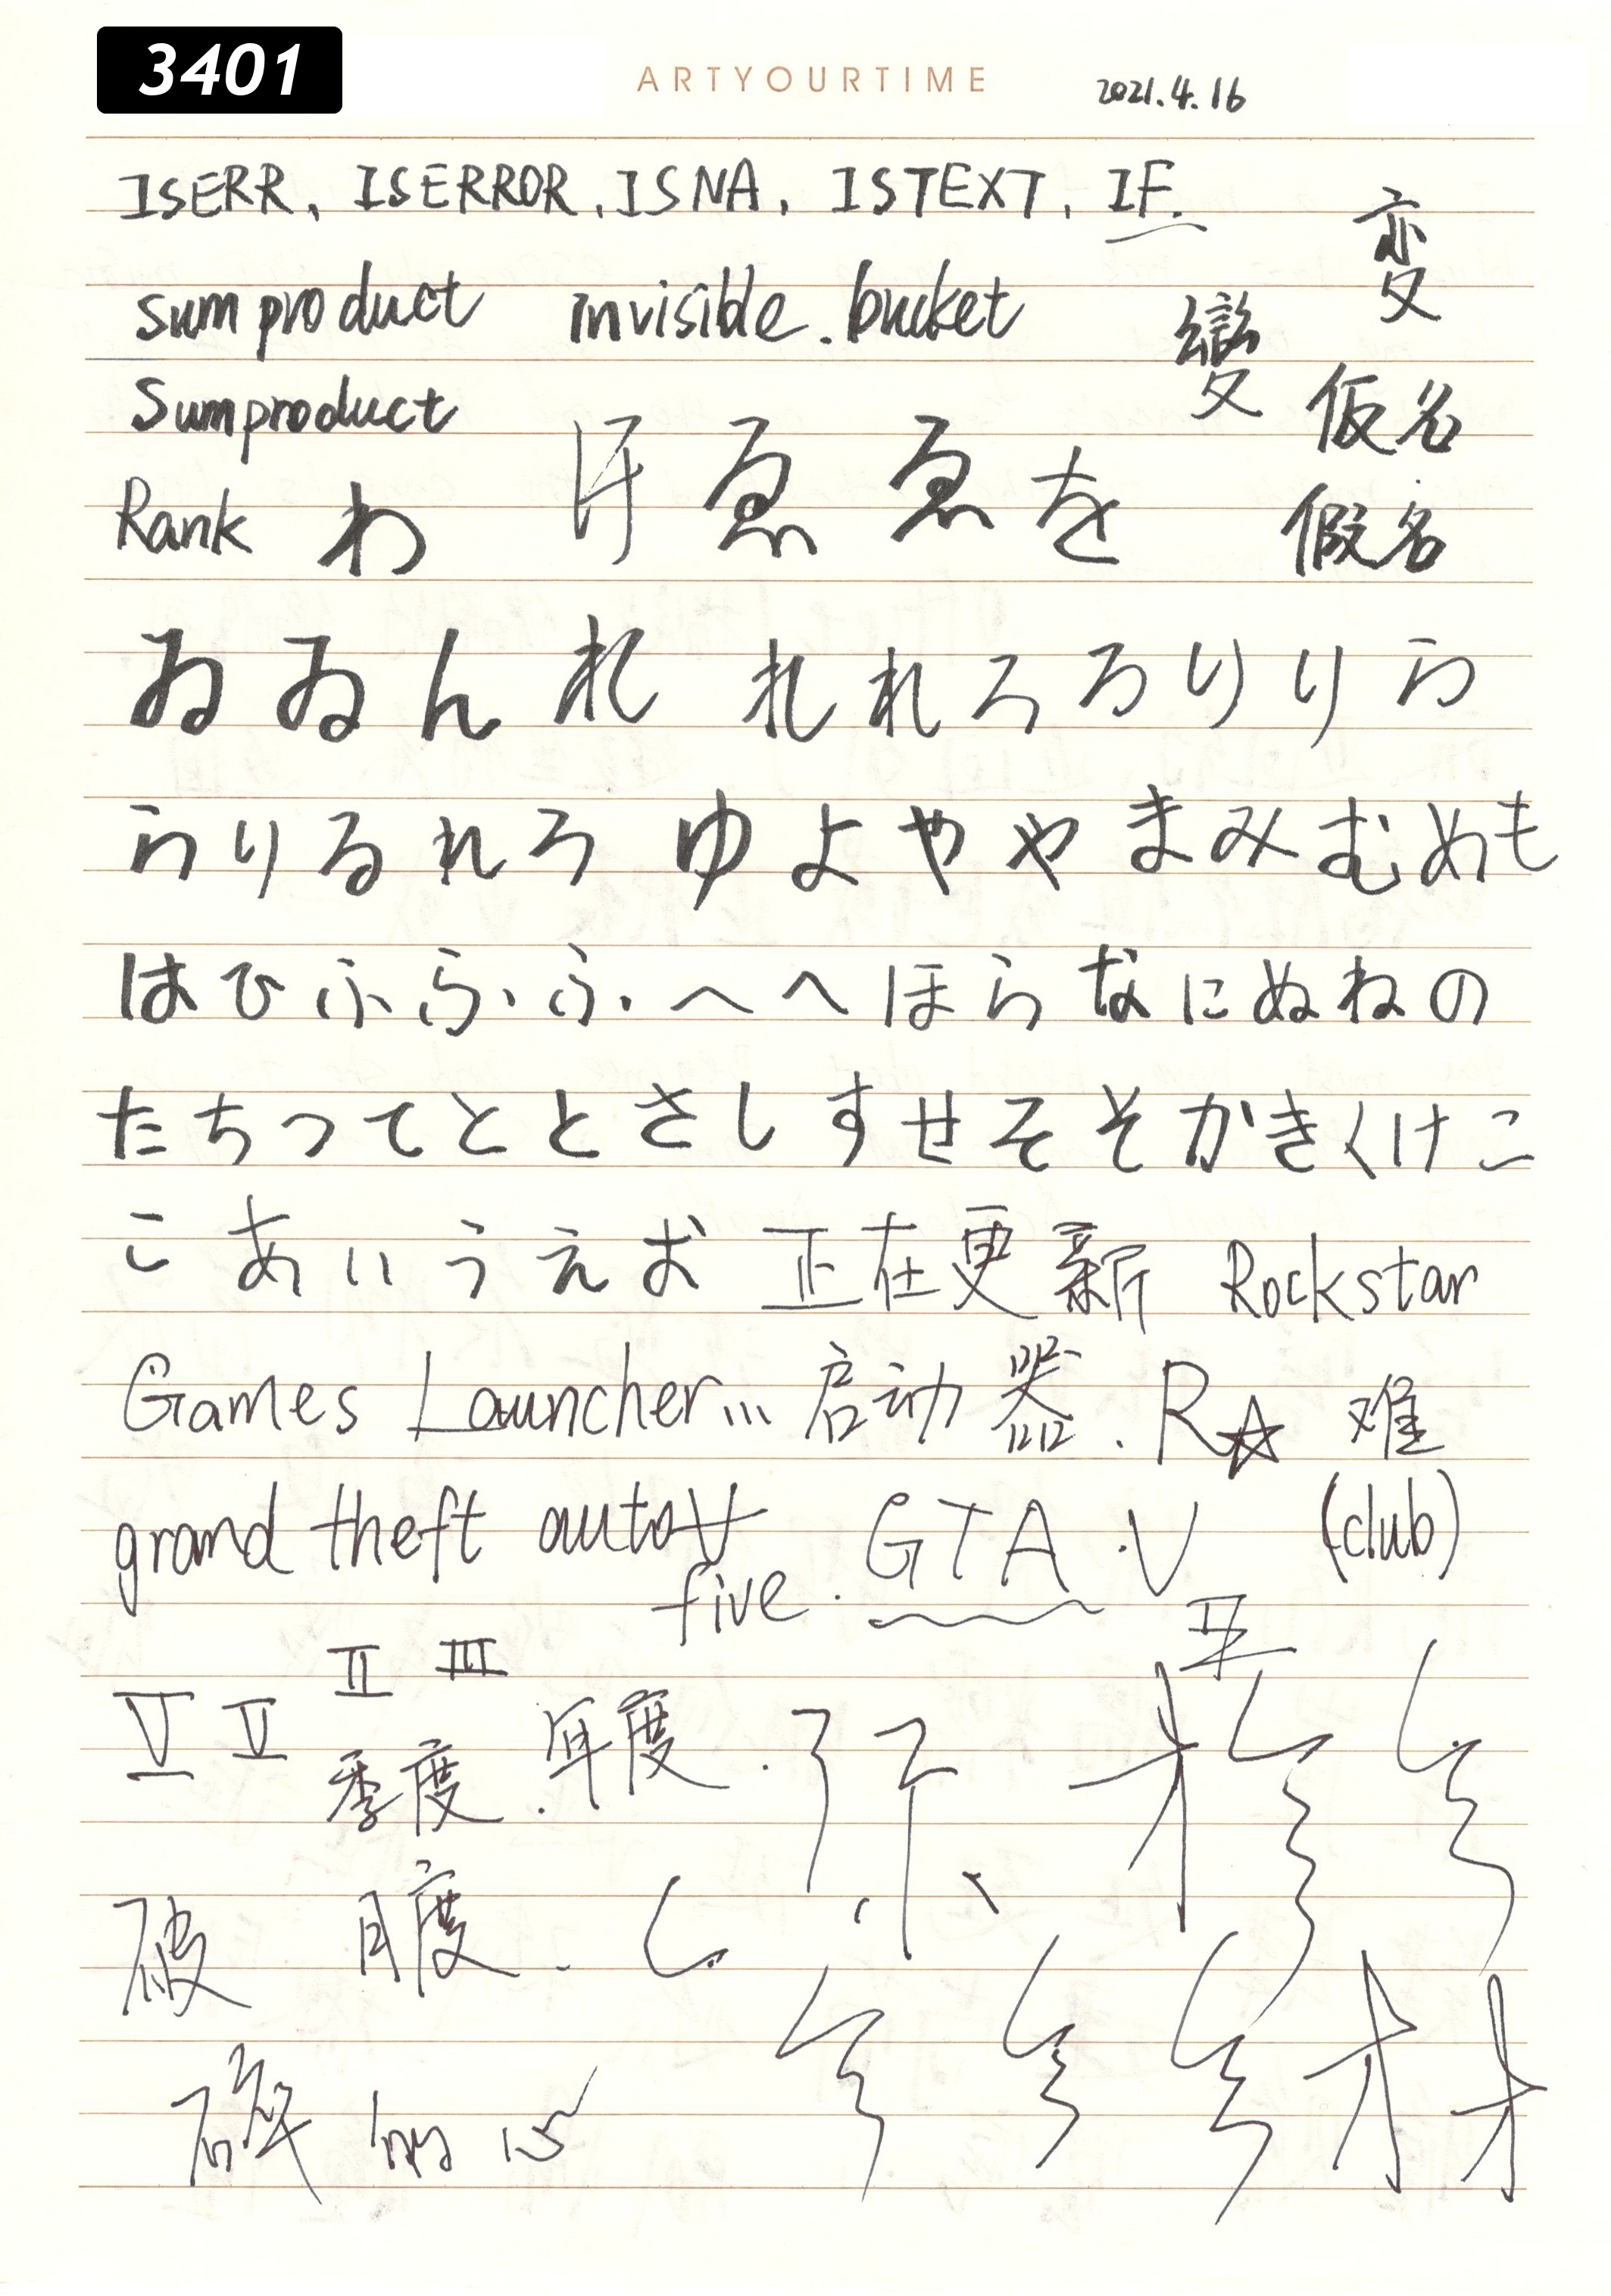 3401
ARTYOURTIME
2021.4.16
ISERR、ISERROR,ISNA,ISTEXT,IF.
変
sumproduct invisible.bucket
變
Sumproduct
仮名
Rank わ ゑ ゑ を
假名
ゐ ゐ ん れ れ れ ろ ろ り り ら
ら り る れ ろ ゆ よ や や ま み む め も
は ひ ふ ふ ふ へ へ ほ ら な に ぬ ね の
た ち つ て と と さ し す せ そ そ か き く け こ
こ あ い う え お 正在更新 Rockstar
Games Launcher... 启动器.R☆ 难
grand theft auto V GTA.V (club)
five.
II III
V V 季度.年度.
破 月度.
碎 的 心